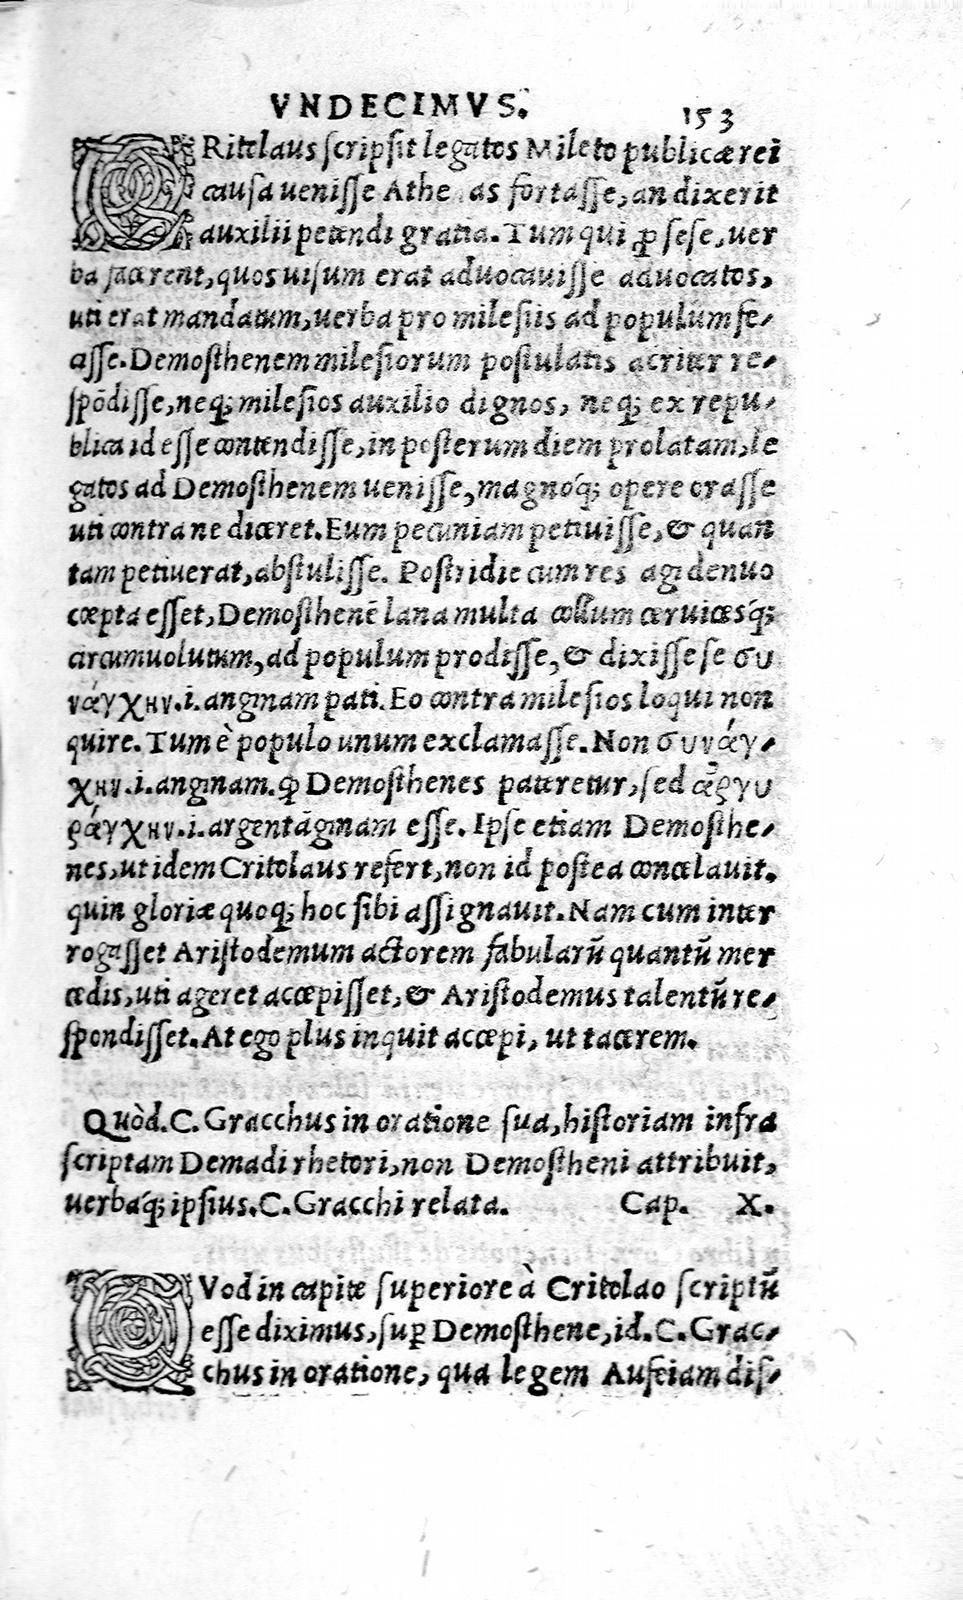 VNDECIMVS. 153
CRitolaus scripsit legatos Mileto publicæ rei
causa uenisse Athe as fortasse, an dixerit
auxilii petendi gratia. Tum qui ꝓ sese, uer
ba facerent, quos uisum erat aduocauisse aduocatos,
uti erat mandatum, uerba pro milesiis ad populum fe-
cisse. Demosthenem milesiorum postulatis acriter re-
spōdisse, neqꝫ milesios auxilio dignos, neqꝫ ex repu-
blica id esse contendisse, in posterum diem prolatam, le
gatos ad Demosthenem uenisse, magnóqꝫ opere orasse
uti contra ne diceret. Eum pecuniam petiuisse, & quan
tam petiuerat, abstulisse. Postridie cum res agi denuo
cœpta esset, Demosthenē lana multa collum ceruicesqꝫ
circumuolutum, ad populum prodisse, & dixisse se συ
νάγχην .i. anginam pati. Eo contra milesios loqui non
quire. Tum è populo unum exclamasse. Non συνάγ-
χην .i. anginam. ꝙ Demosthenes pateretur, sed ἀργυ
ράγχην .i. argentāginam esse. Ipse etiam Demosthe-
nes, ut idem Critolaus refert, non id postea concelauit.
quin gloriæ quoqꝫ hoc sibi assignauit. Nam cum inter
rogasset Aristodemum actorem fabularū quantū mer
cedis, uti ageret accepisset, & Aristodemus talentū re-
spondisset. At ego plus inquit accepi, ut tacerem.
Quòd. C. Gracchus in oratione sua, historiam infra
scriptam Demadi rhetori, non Demostheni attribuit,
uerbaqꝫ ipsius. C. Gracchi relata. Cap. X.
QVod in capite superiore à Critolao scriptū
esse diximus, suꝑ Demosthene, id. C. Grac-
chus in oratione, qua legem Aufeiam dis-